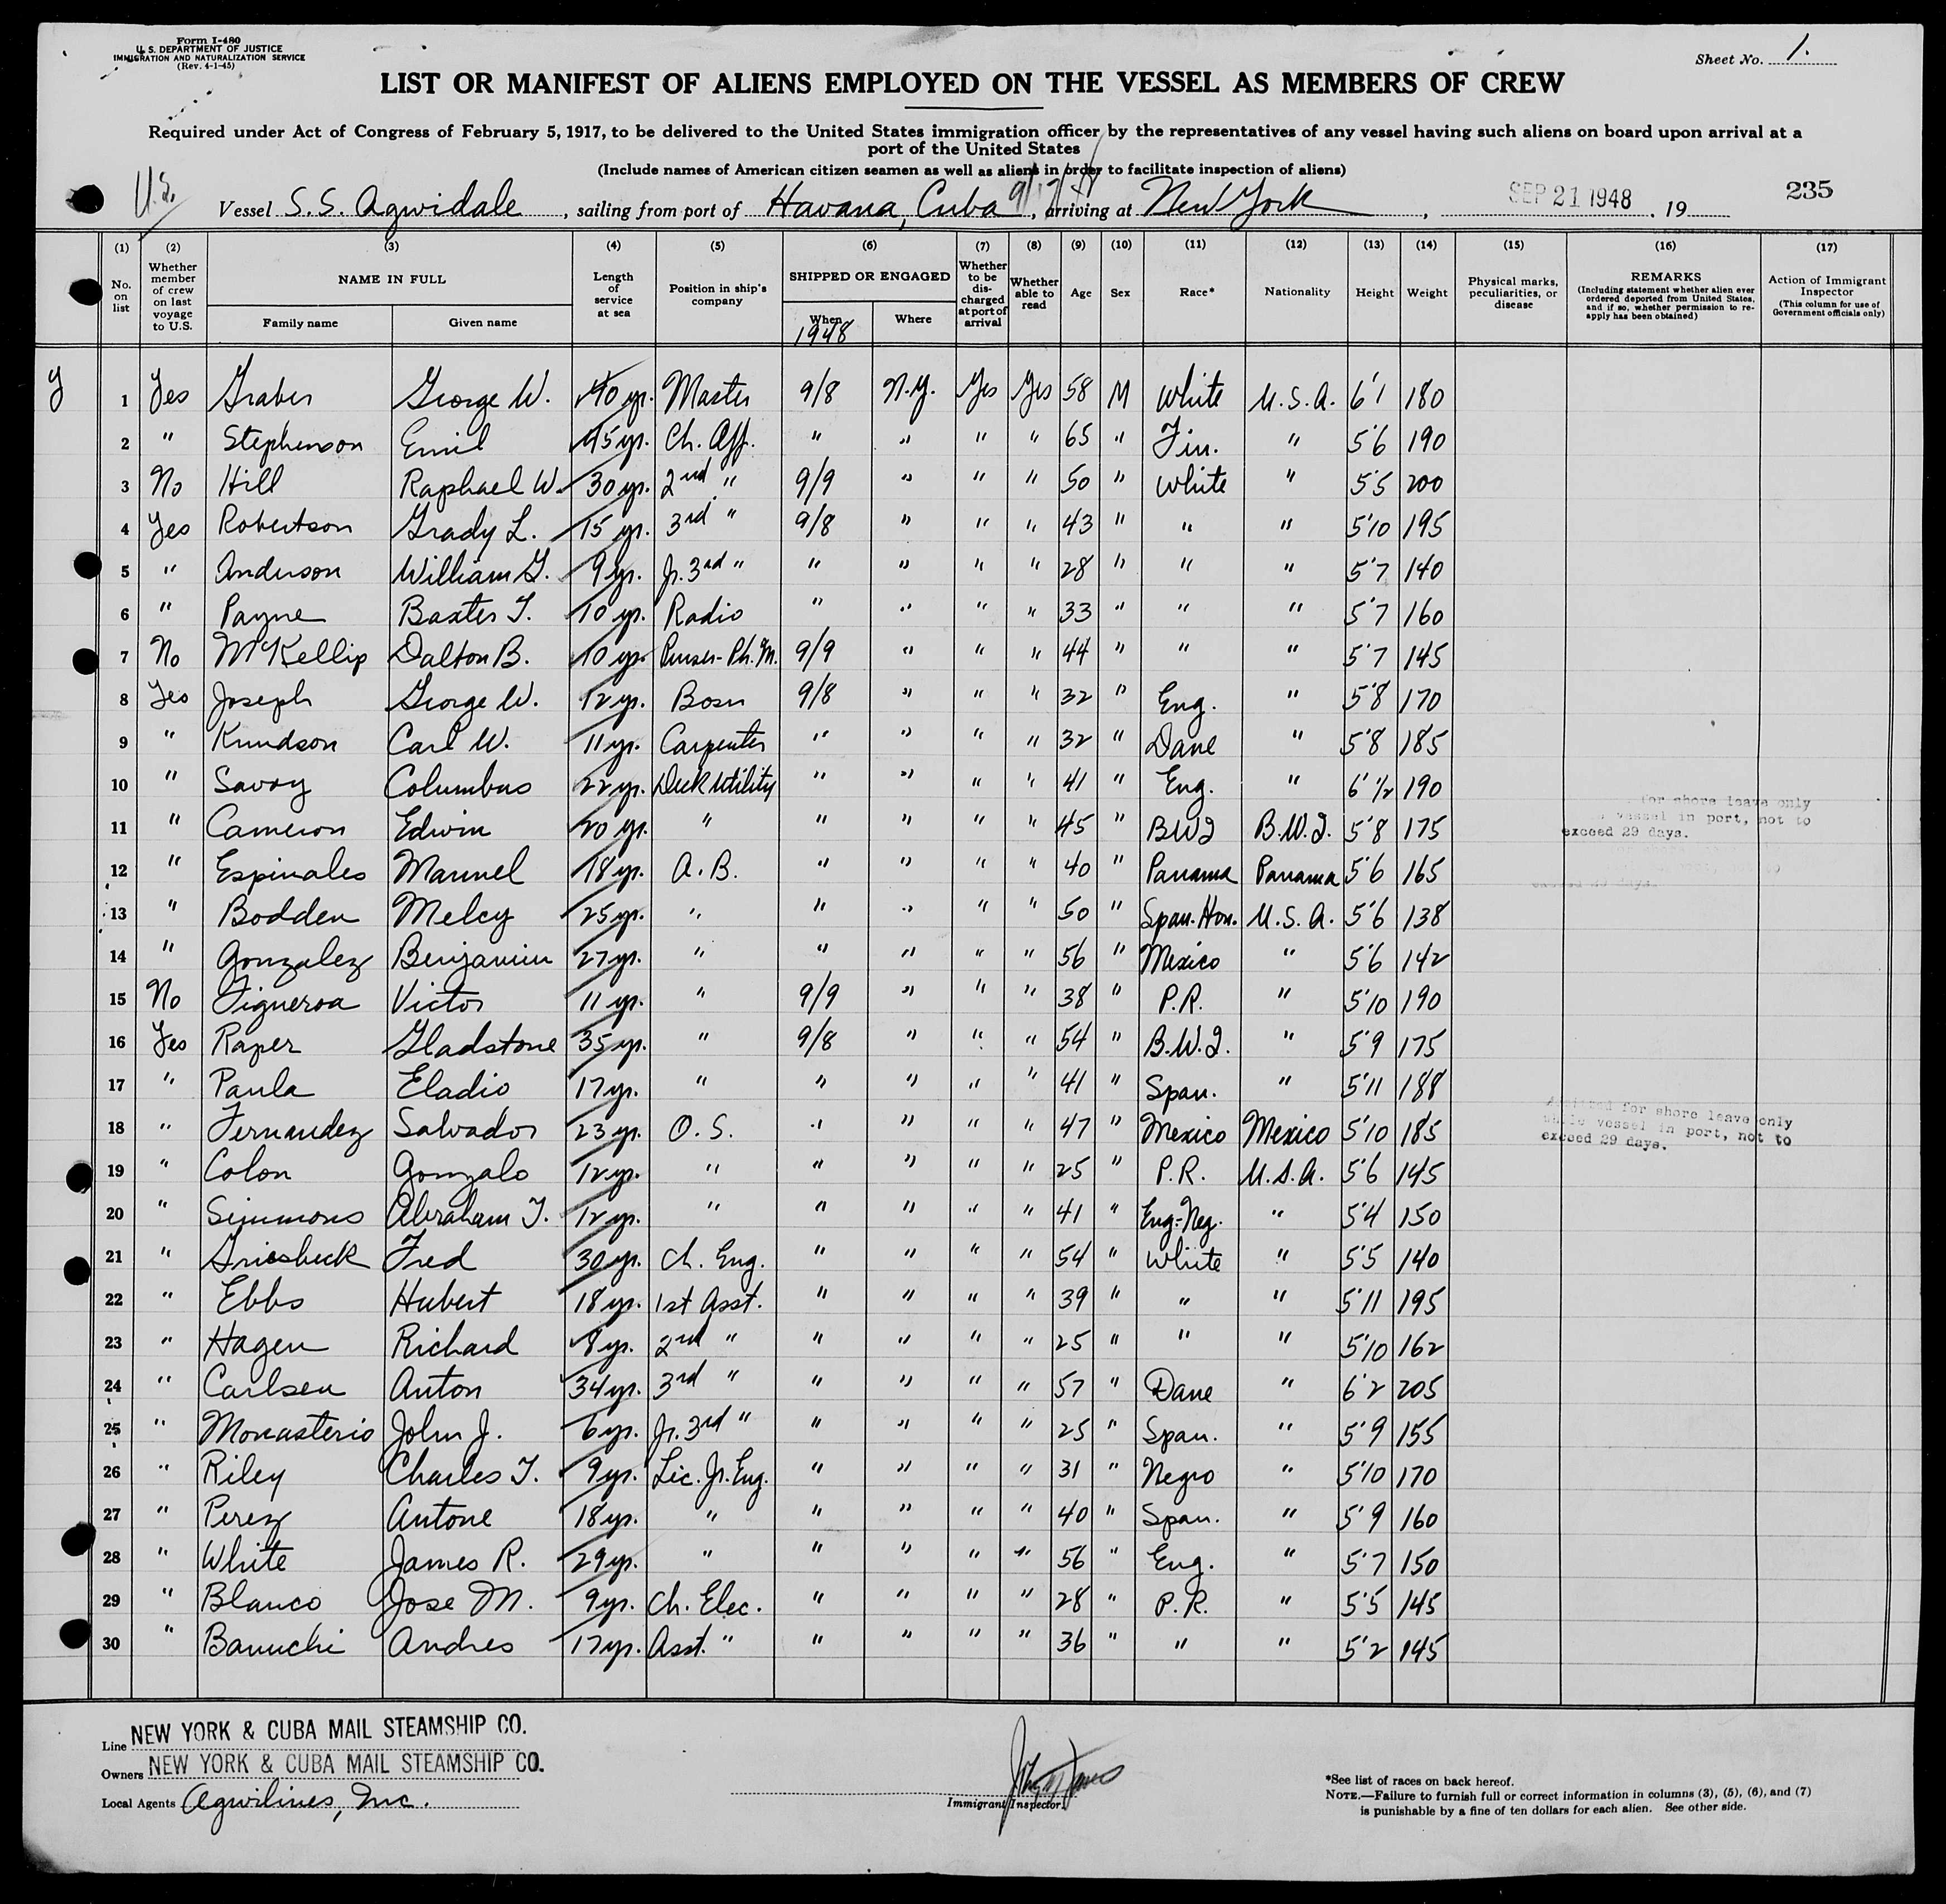 Form I-480
U. S. DEPARTMENT OF JUSTICE
IMMIGRATION AND NATURALIZATION SERVICE
(Rev. 4-1-45)
Sheet No. 1.
LIST OR MANIFEST OF ALIENS EMPLOYED ON THE VESSEL AS MEMBERS OF CREW
Required under Act of Congress of February 5, 1917, to be delivered to the United States immigration officer by the representatives of any vessel having such aliens on board upon arrival at a
port of the United States
(Include names of American citizen seamen as well as aliens in order to facilitate inspection of aliens)
U.S. Vessel S.S. Agwidale, sailing from port of Havana, Cuba, arriving at New York, SEP 21 1948, 19 235
(1) (2) (3) (4) (5) (6) (7) (8) (9) (10) (11) (12) (13) (14) (15) (16) (17)
No. on list
Whether member of crew on last voyage to U.S.
NAME IN FULL
Family name
Given name
Length of service at sea
Position in ship's company
SHIPPED OR ENGAGED
When 1948
Where
Whether to be discharged at port of arrival
Whether able to read
Age
Sex
Race*
Nationality
Height
Weight
Physical marks, peculiarities, or disease
REMARKS
(Including statement whether alien ever ordered deported from United States, and if so, whether permission to re-apply has been obtained)
Action of Immigrant Inspector
(This column for use of Government officials only)
1 Yes Graber George W. 40 yr. Master 9/8 N.Y. Yes Yes 58 M White U.S.A. 6'1 180
2 " Stephenson Emil 45 yr. Ch. Off. " " " " 65 " Fin. " 5'6 190
3 No Hill Raphael W. 30 yr. 2nd " 9/9 " " " 50 " White " 5'5 200
4 Yes Robertson Grady L. 15 yr. 3rd " 9/8 " " " 43 " " " 5'10 195
5 " Anderson William G. 9 yr. Jr. 3rd " " " " " 28 " " " 5'7 140
6 " Payne Baxter T. 10 yr. Radio " " " " 33 " " " 5'7 160
7 No McKellip Dalton B. 10 yr. Purser-Ph. M. 9/9 " " " 44 " " " 5'7 145
8 Yes Joseph George W. 12 yr. Bosn 9/8 " " " 32 " Eng. " 5'8 170
9 " Knudson Carl W. 11 yr. Carpenter " " " " 32 " Dane " 5'8 185
10 " Savoy Columbus 22 yr. Deck Utility " " " " 41 " Eng. " 6'1/2 190
11 " Cameron Edwin 20 yr. " " " " " 45 " BWI B.W.I. 5'8 175 for shore leave only
vessel in port, not to
exceed 29 days.
12 " Espinales Manuel 18 yr. A.B. " " " " 40 " Panama Panama 5'6 165 exceed 29 days.
13 " Bodden Melcy 25 yr. " " " " " 50 " Span. Hon. U.S.A. 5'6 138
14 " Gonzalez Benjamin 27 yr. " " " " " 56 " Mexico " 5'6 142
15 No Figueroa Victor 11 yr. " 9/9 " " " 38 " P.R. " 5'10 190
16 Yes Raper Gladstone 35 yr. " 9/8 " " " 54 " B.W.I. " 5'9 175
17 " Paula Eladio 17 yr. " " " " " 41 " Span. " 5'11 188
18 " Fernandez Salvador 23 yr. O.S. " " " " 47 " Mexico Mexico 5'10 185 Admitted for shore leave only
while vessel in port, not to
exceed 29 days.
19 " Colon Gonzalo 12 yr. " " " " " 25 " P.R. U.S.A. 5'6 145
20 " Simmons Abraham T. 12 yr. " " " " " 41 " Eng-Neg. " 5'4 150
21 " Griesbeck Fred 30 yr. Ch. Eng. " " " " 54 " White " 5'5 140
22 " Ebbs Hubert 18 yr. 1st Asst. " " " " 39 " " " 5'11 195
23 " Hagen Richard 8 yr. 2nd " " " " " 25 " " " 5'10 162
24 " Carlsen Anton 34 yr. 3rd " " " " " 57 " Dane " 6'2 205
25 " Monasterio John J. 6 yr. Jr. 3rd " " " " " 25 " Span. " 5'9 155
26 " Riley Charles T. 9 yr. Lic. Jr. Eng. " " " " 31 " Negro " 5'10 170
27 " Perez Antone 18 yr. " " " " " 40 " Span. " 5'9 160
28 " White James R. 29 yr. " " " " " 56 " Eng. " 5'7 150
29 " Blanco Jose M. 9 yr. Ch. Elec. " " " " 28 " P.R. " 5'5 145
30 " Banuchi Andres 17 yr. Asst. " " " " " 36 " " " 5'2 145
Line NEW YORK & CUBA MAIL STEAMSHIP CO.
Owners NEW YORK & CUBA MAIL STEAMSHIP CO.
Local Agents Agwilines, Inc.
Immigrant Inspector
*See list of races on back hereof.
NOTE.—Failure to furnish full or correct information in columns (3), (5), (6), and (7)
is punishable by a fine of ten dollars for each alien. See other side.